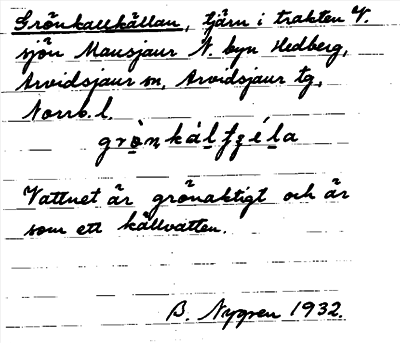 Grönkallkällan, tjärn i trakten V.
sjön Mausjaur N. byn Hedberg,
Arvidsjaur sn, Arvidsjaur tg,
Norrb. l.
Vattnet är grönaktigt och är
som ett källvatten.
B. Nygren 1932.